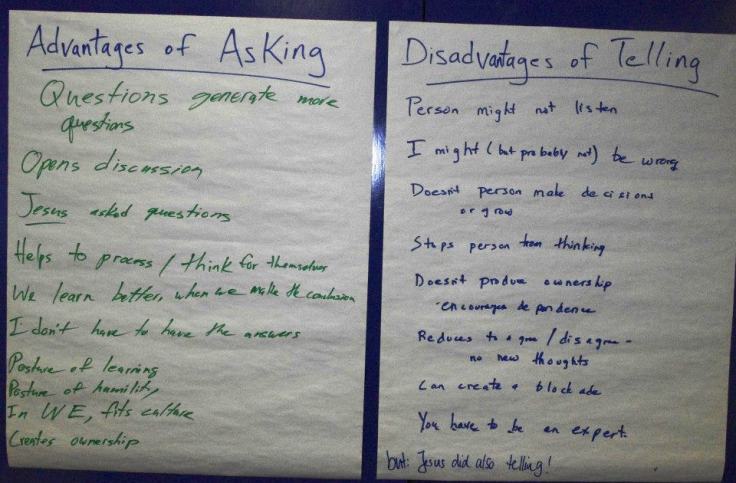 Advantages of Asking
Questions generate more
questions
Opens discussion
Jesus asked questions
Helps to process / think for themselves
We learn better, when we make the conclusion
I don't have to have the answers
Posture of learning
Posture of humility,
In WE, fits culture
Creates ownership
Disadvantages of Telling
Person might not listen
I might (but probably not) be wrong
Doesn't person make decisions
or grow
Stops person from thinking
Doesn't produce ownership
·encourages dependence
Reduces to agree / disagree -
no new thoughts
Can create a blockade
You have to be an expert.
but: Jesus did also telling!